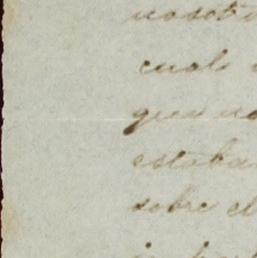 nosot
cual
que no
estaba
sobre el